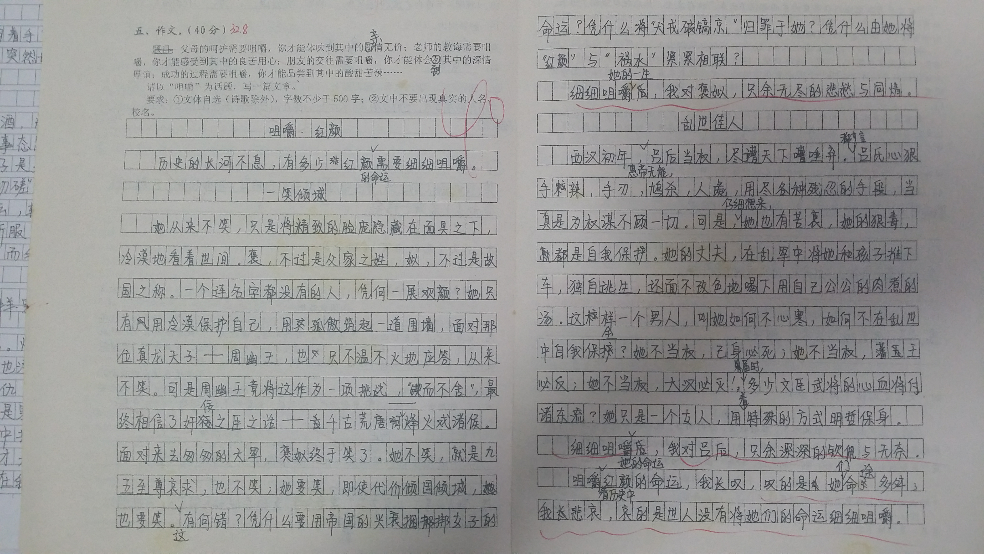 五、作文。(40分)
父母的呵护需要咀嚼,你才能体味到其中的亲情无价;老师的教诲需要咀
嚼,你才能感受到其中的良苦用心;朋友的交往需要咀嚼,你才能体会到其中的深情
厚谊;成功的过程需要咀嚼,你才能品尝到其中的酸甜苦辣……
请以“咀嚼”为话题,写一篇文章。
要求:①文体自选(诗歌除外),字数不少于500字;②文中不要出现真实的人名、
校名。
咀嚼 红颜
历史的长河不息,有多少红颜的命运需要细细咀嚼。
一笑倾城
她从来不笑,只是将精致的脸庞隐藏在面具之下,
冷漠地看着世间。褒,不过是父家之姓,姒,不过是故
国之称。一个连名字都没有的人,凭何一展欢颜?她只
有用冷漠保护自己,用孤傲筑起一道围墙,面对那
位真龙天子——周幽王,也只不温不火地应答,从来
不笑。可是周幽王竟将这作为一项挑战,“锲而不舍”,最
终相信了奸佞之臣之话——首千古荒唐烽火戏诸侯。
面对来去匆匆的大军,褒姒终于笑了。她不笑,就是九
五至尊哀求,也不笑;她要笑,即使代价倾国倾城,她
也要笑。这有何错?凭什么要用帝国的兴衰捆绑女子的
命运?凭什么将火戏
归罪于她?凭什么由她将
“红颜”与“祸水”紧紧相联?
细细咀嚼她的一生后,我对褒姒,只余无尽的悲愁与同情。
乱世佳人
西汉初年,吕后当权,尽遭天下唾弃。吕氏心狠
手辣,手刃、鸩杀、人彘,用尽各种残忍的手段,当
真是为权谋不顾一切。可是,仔细想来,她也有苦衷,她的狠毒,
都是自我保护。她的丈夫,在乱军中将她和孩子推下
车,独自逃生,还面不改色地喝下用自己公公的肉煮的
汤。这样一个男人,叫她如何不心寒,如何不在乱世
中自我保全?她不当权,己身必死;她不当权,诸王
必反;她不当权,大汉必灭!多少文臣武将的心血将付
诸东流?她只是一个女人,用特殊的方式明哲保身。
细细咀嚼她的命运后,我对吕后,只余深深的钦佩与无奈。
咀嚼红颜的命运,我长叹,叹的是她命运多舛;
我长悲哀,哀的是世人没有将她们的命运细细咀嚼。